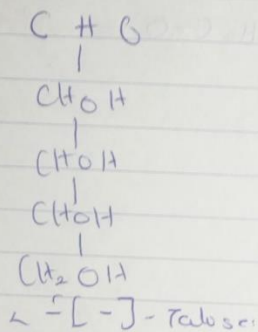 CHO
CHOH
CHOH
CHOH
CH₂OH
L-[-]-Talose